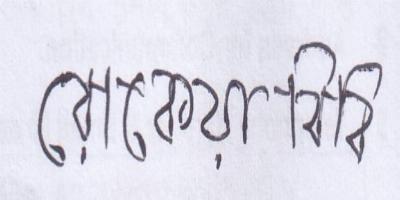 রোকেয়া বিবি